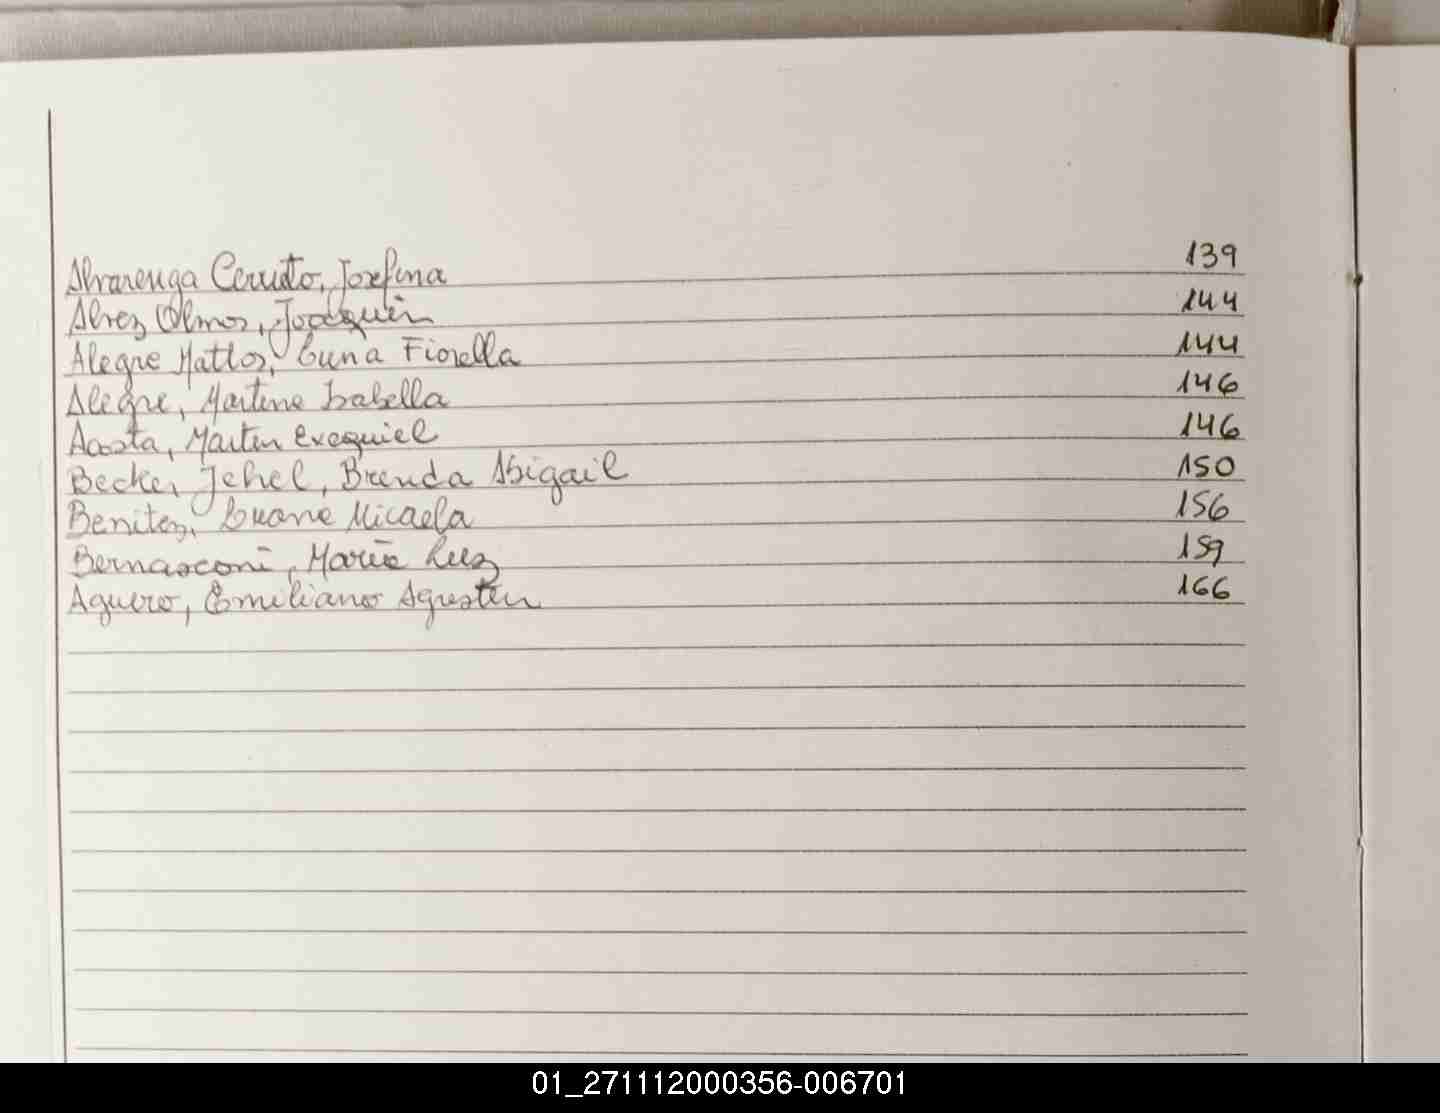 Alvarenga Cerruto, Josefina 139
Alvez Olmos, Joaquín 144
Alegre Mattos, Luna Fiorella 144
Alegre, Martina Isabella 146
Acosta, Martin Exequiel 146
Becker Jehel, Brenda Abigail 150
Benitez, Luana Micaela 156
Bernasconi, María Luz 159
Aguero, Emiliano Agustin 166
01_271112000356-006701